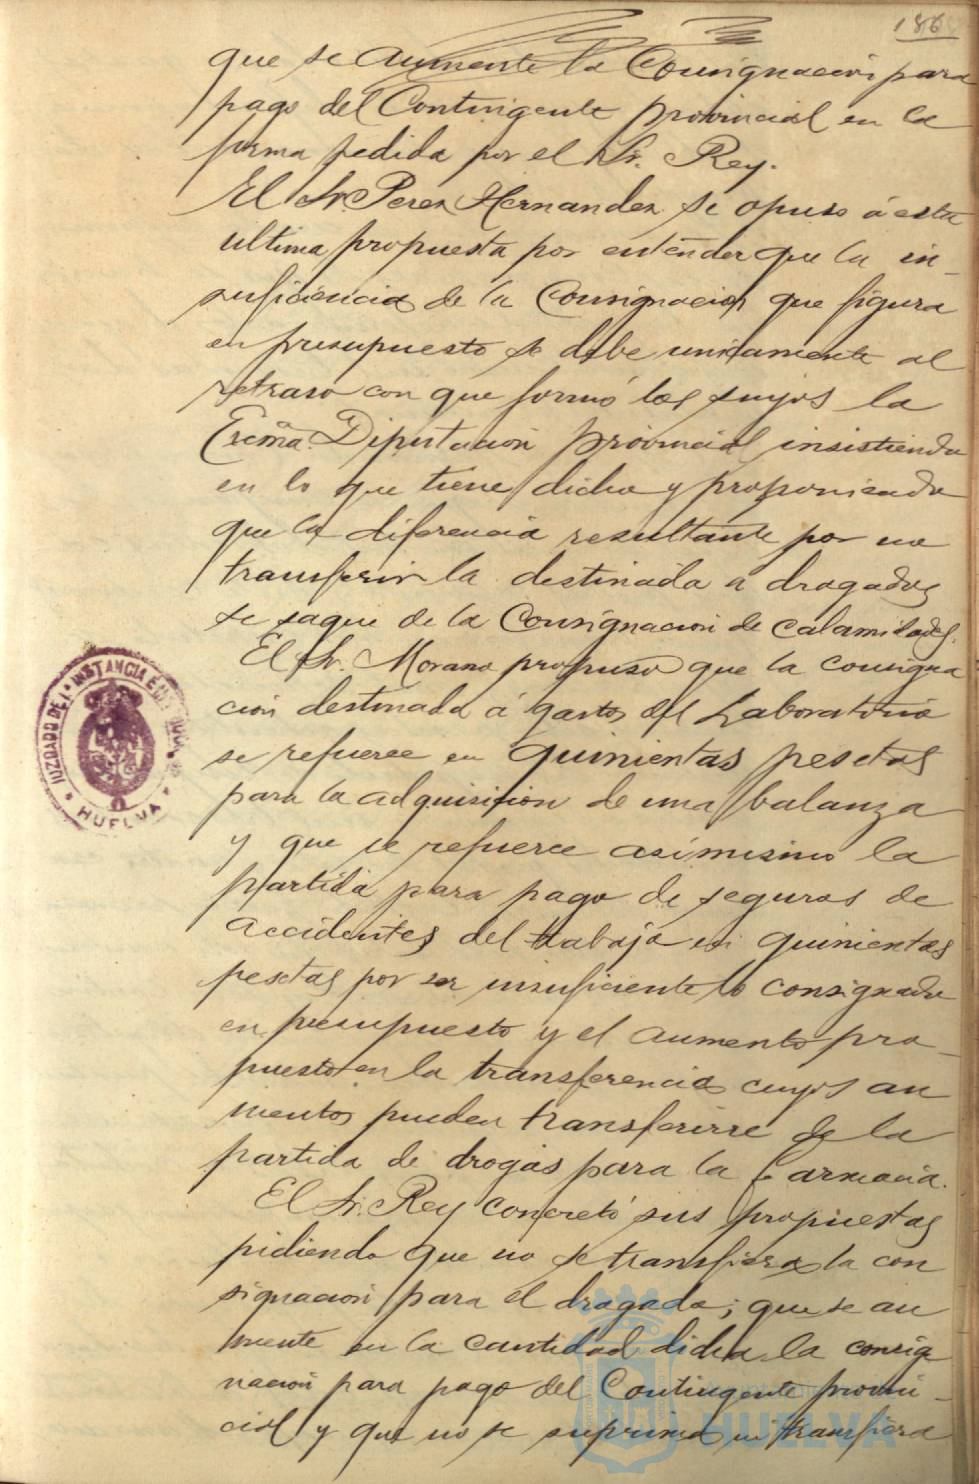 186
que se aumente la Consignación para
pago del Contingente provincial en la
forma pedida por el Sr. Rey.
El Sr. Perez Hernandez se opuso á esta
ultima propuesta por entender que la in-
suficiencia de la Consignacion que figura
en presupuesto se debe unicamente al
retraso con que formó los suyos la
Excma. Diputacion provincial insistiendo
en lo que tiene dicho y proponiendo
que la diferencia resultante por no
transferir la destinada a dragados
se saque de la Consignacion de calamidades.
El Sr. Morano propuso que la consigna
cion destinada á gastos del Laboratorio
se refuerce en quinientas pesetas
para la adquisicion de una balanza
y que se refuerce asimismo la
partida para pago de seguros de
accidentes del trabajo en quinientas
pesetas por ser insuficiente lo consignado
en presupuesto y el aumento pro-
puesto en la transferencia cuyos au
mentos pueden transferirse de la
partida de drogas para la Farmacia.
El Sr. Rey concretó sus propuestas
pidiendo que no se transfiera la con
signacion para el dragado; que se au
mente en la cantidad dicha la consig
nacion para pago del Contingente provin-
cial y que no se suprima ni transfiera
JUZGADO DE 1ª INSTANCIA E INS
HUELVA
HUELVA